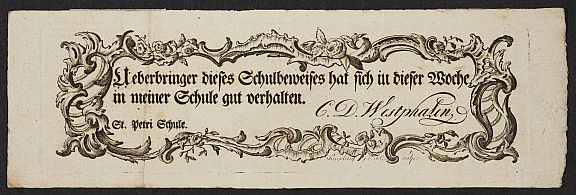 Ueberbringer dieses Schulbeweises hat sich in dieser Woche
in meiner Schule gut verhalten.
C. D. Westphalen,
St. Petri Schule.